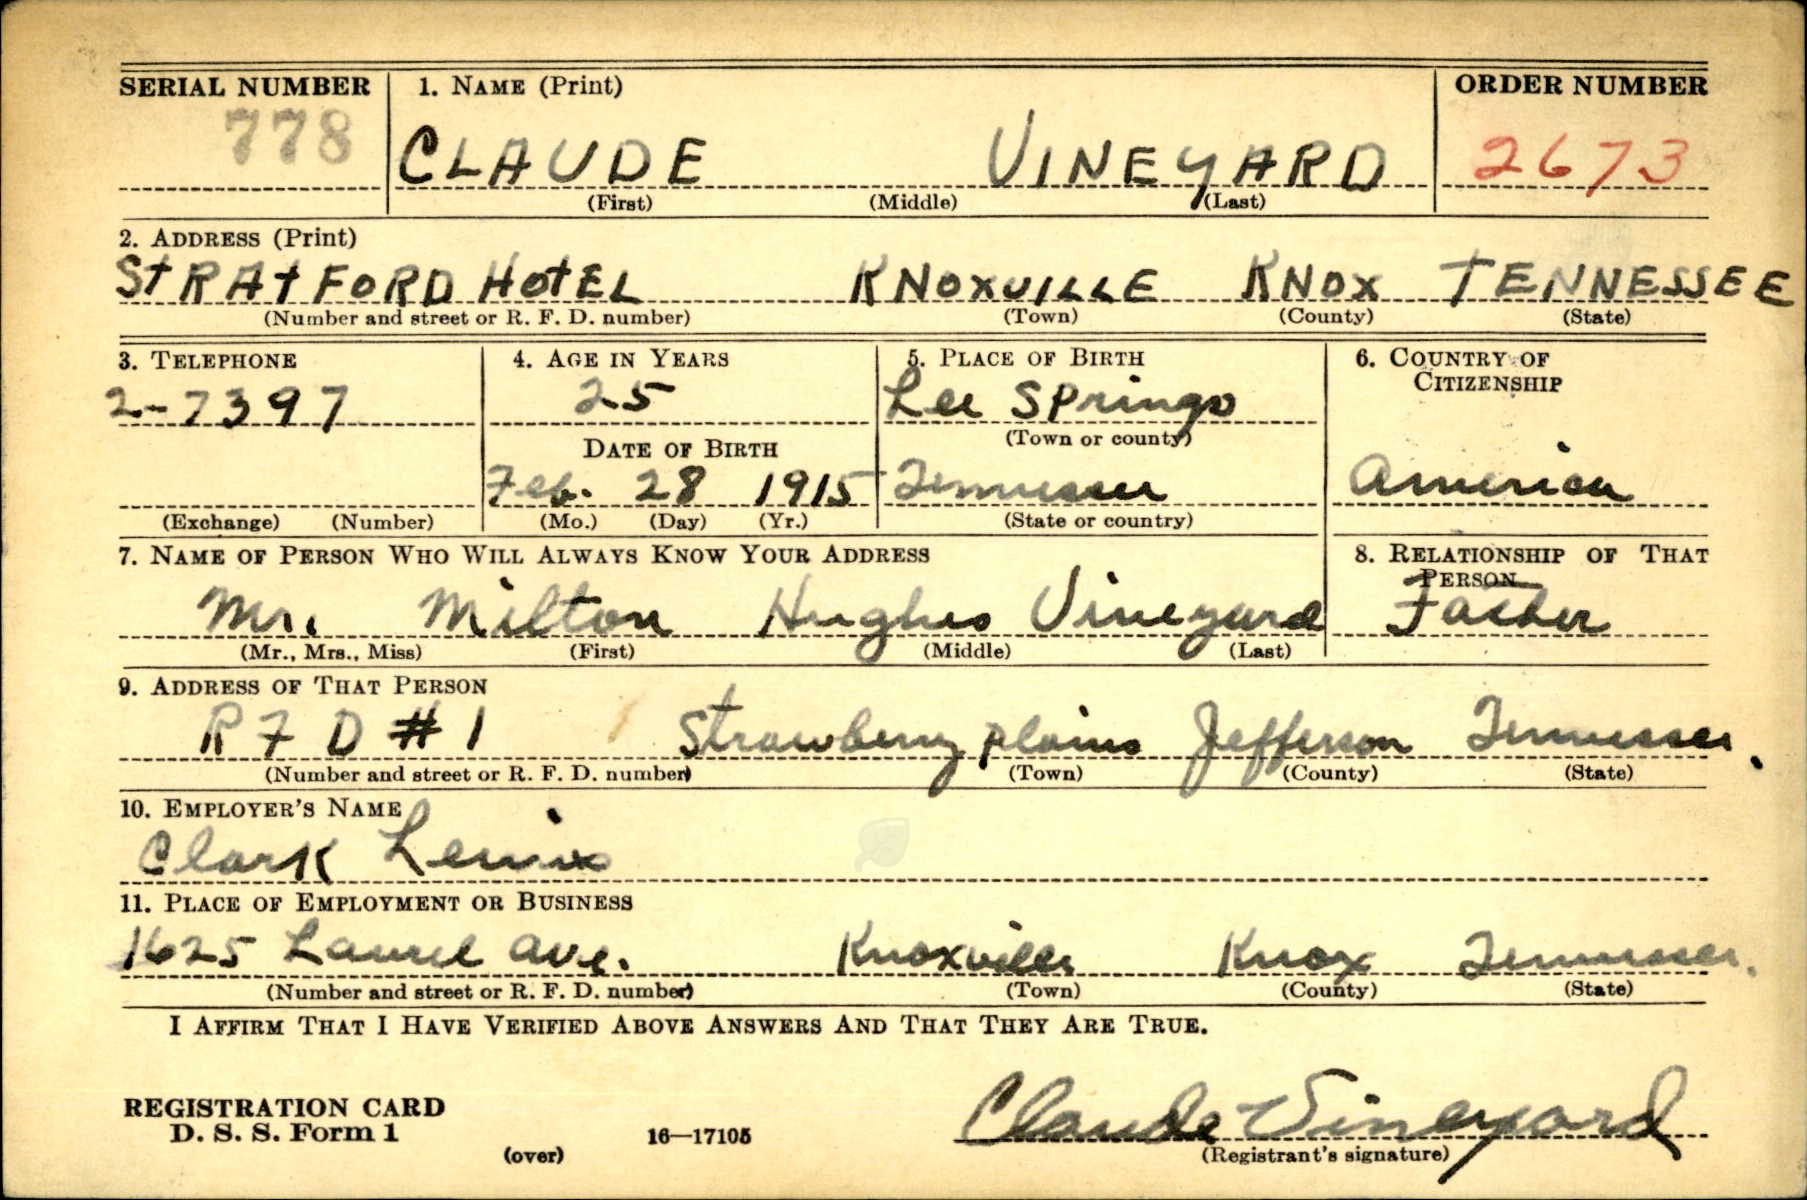 SERIAL NUMBER 1. NAME (Print) ORDER NUMBER
778 CLAUDE VINEYARD 2673
(First) (Middle) (Last)
2. ADDRESS (Print)
StRAtFORD HotEL KNOXVILLE KNOX TENNESSEE
(Number and street or R. F. D. number) (Town) (County) (State)
3. TELEPHONE 4. AGE IN YEARS 5. PLACE OF BIRTH 6. COUNTRY OF
CITIZENSHIP
2-7397 25 Lee Springs
DATE OF BIRTH (Town or county)
Feb. 28 1915 Tennessee America
(Exchange) (Number) (Mo.) (Day) (Yr.) (State or country)
7. NAME OF PERSON WHO WILL ALWAYS KNOW YOUR ADDRESS 8. RELATIONSHIP OF THAT
PERSON
Mr. Milton Hughes Vineyard Father
(Mr., Mrs., Miss) (First) (Middle) (Last)
9. ADDRESS OF THAT PERSON
R F D # 1 Strawberry plains Jefferson Tennessee.
(Number and street or R. F. D. number) (Town) (County) (State)
10. EMPLOYER'S NAME
Clark
11. PLACE OF EMPLOYMENT OR BUSINESS
1625 Laurel ave. Knoxville Knox Tennessee.
(Number and street or R. F. D. number) (Town) (County) (State)
I AFFIRM THAT I HAVE VERIFIED ABOVE ANSWERS AND THAT THEY ARE TRUE.
REGISTRATION CARD
D. S. S. Form 1 16—17105 Claude Vineyard
(over) (Registrant's signature)